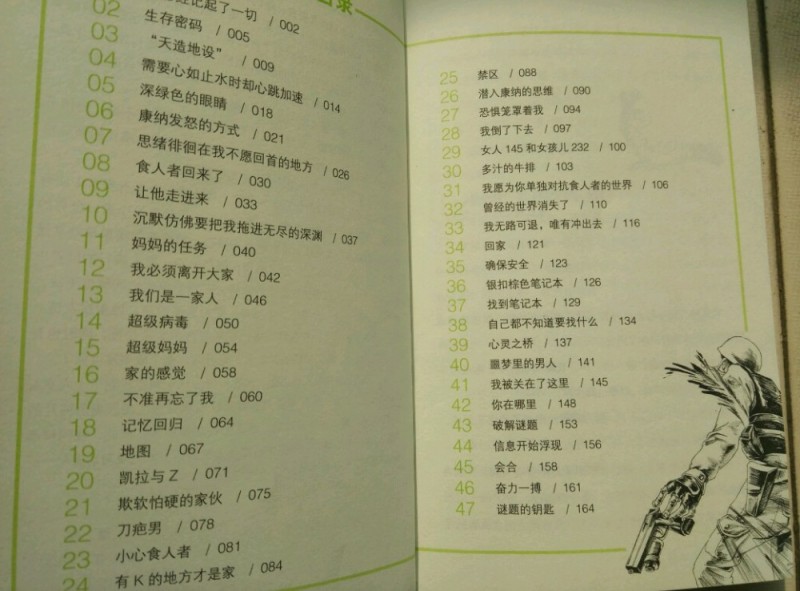 录
记起了一切 / 002
02 生存密码 / 005
03 “天造地设” / 009
04 需要心如止水时却心跳加速 / 014
05 深绿色的眼睛 / 018
06 康纳发怒的方式 / 021
07 思绪徘徊在我不愿回首的地方 / 026
08 食人者回来了 / 030
09 让他走进来 / 033
10 沉默仿佛要把我拖进无尽的深渊 / 037
11 妈妈的任务 / 040
12 我必须离开大家 / 042
13 我们是一家人 / 046
14 超级病毒 / 050
15 超级妈妈 / 054
16 家的感觉 / 058
17 不准再忘了我 / 060
18 记忆回归 / 064
19 地图 / 067
20 凯拉与 Z / 071
21 欺软怕硬的家伙 / 075
22 刀疤男 / 078
23 小心食人者 / 081
24 有 K 的地方才是家 / 084
25 禁区 / 088
26 潜入康纳的思维 / 090
27 恐惧笼罩着我 / 094
28 我倒了下去 / 097
29 女人 145 和女孩儿 232 / 100
30 多汁的牛排 / 103
31 我愿为你单独对抗食人者的世界 / 106
32 曾经的世界消失了 / 110
33 我无路可退，唯有冲出去 / 116
34 回家 / 121
35 确保安全 / 123
36 银扣棕色笔记本 / 126
37 找到笔记本 / 129
38 自己都不知道要找什么 / 134
39 心灵之桥 / 137
40 噩梦里的男人 / 141
41 我被关在了这里 / 145
42 你在哪里 / 148
43 破解谜题 / 153
44 信息开始浮现 / 156
45 会合 / 158
46 奋力一搏 / 161
47 谜题的钥匙 / 164